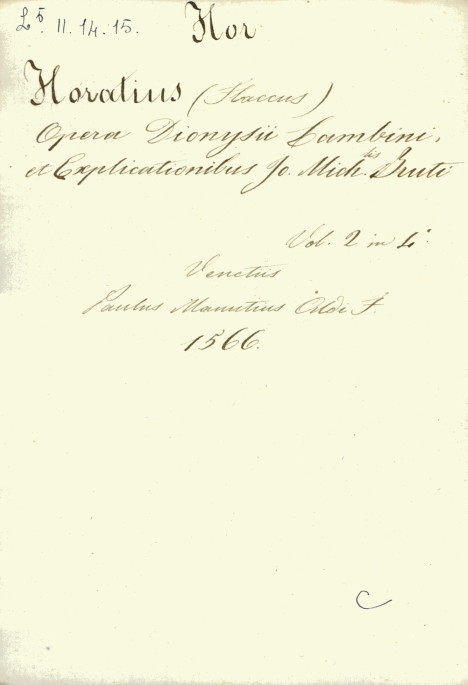 L⁵. 11. 14. 15. Hor
Horatius (Flaccus)
Opera Dionysii Lambini,
et Explicationibus Jo. Mich.lis Bruti
Vol. 2 in 4°.
Venetiis
Paulus Manutius Aldi F.
1566.
C